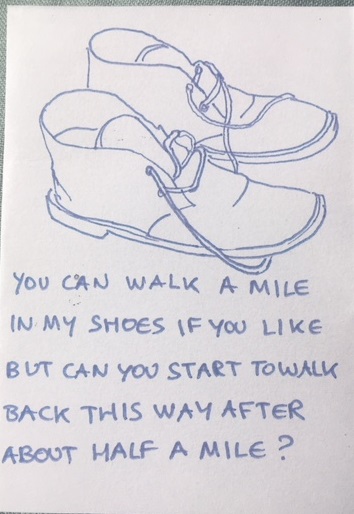 YOU CAN WALK A MILE
IN MY SHOES IF YOU LIKE
BUT CAN YOU START TO WALK
BACK THIS WAY AFTER
ABOUT HALF A MILE?